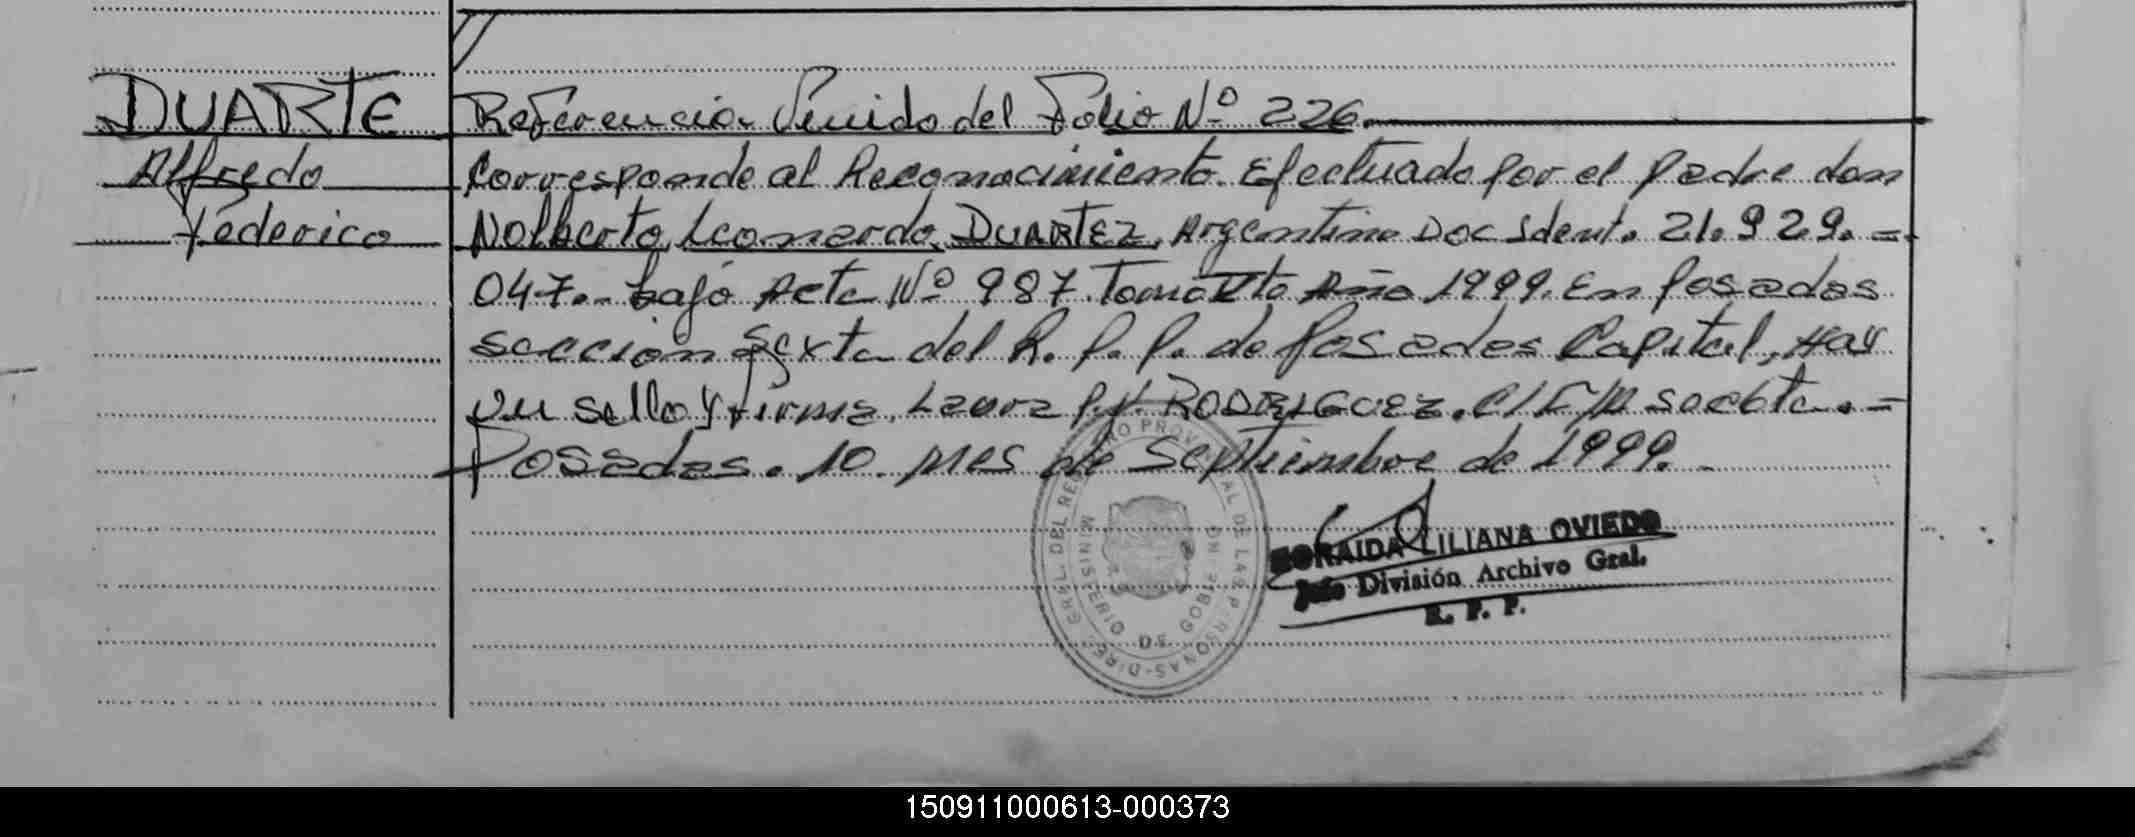 DUARTE
Alfredo
Federico
Referencia Venido del Folio Nº 226.
Corresponde al Reconocimiento Efectuado por el padre don
Nolberto Leonardo DUARTEz, Argentino Doc Ident. 21.929.=
047.- bajo Acta Nº 987. Tomo Año 1999. En Posadas
sección Sexta del R. P. P. de Posadas Capital, Hay
un sello y firma. Laura RODRIGUEZ.
Posadas. 10. mes de Septiembre de 1999.-
DIREC. GRAL. DEL REGISTRO PROVINCIAL DE LAS PERSONAS
MINISTERIO DE GOBIERNO
ZORAIDA LILIANA OVIEDO
Jefe División Archivo Gral.
R. P. P.
150911000613-000373